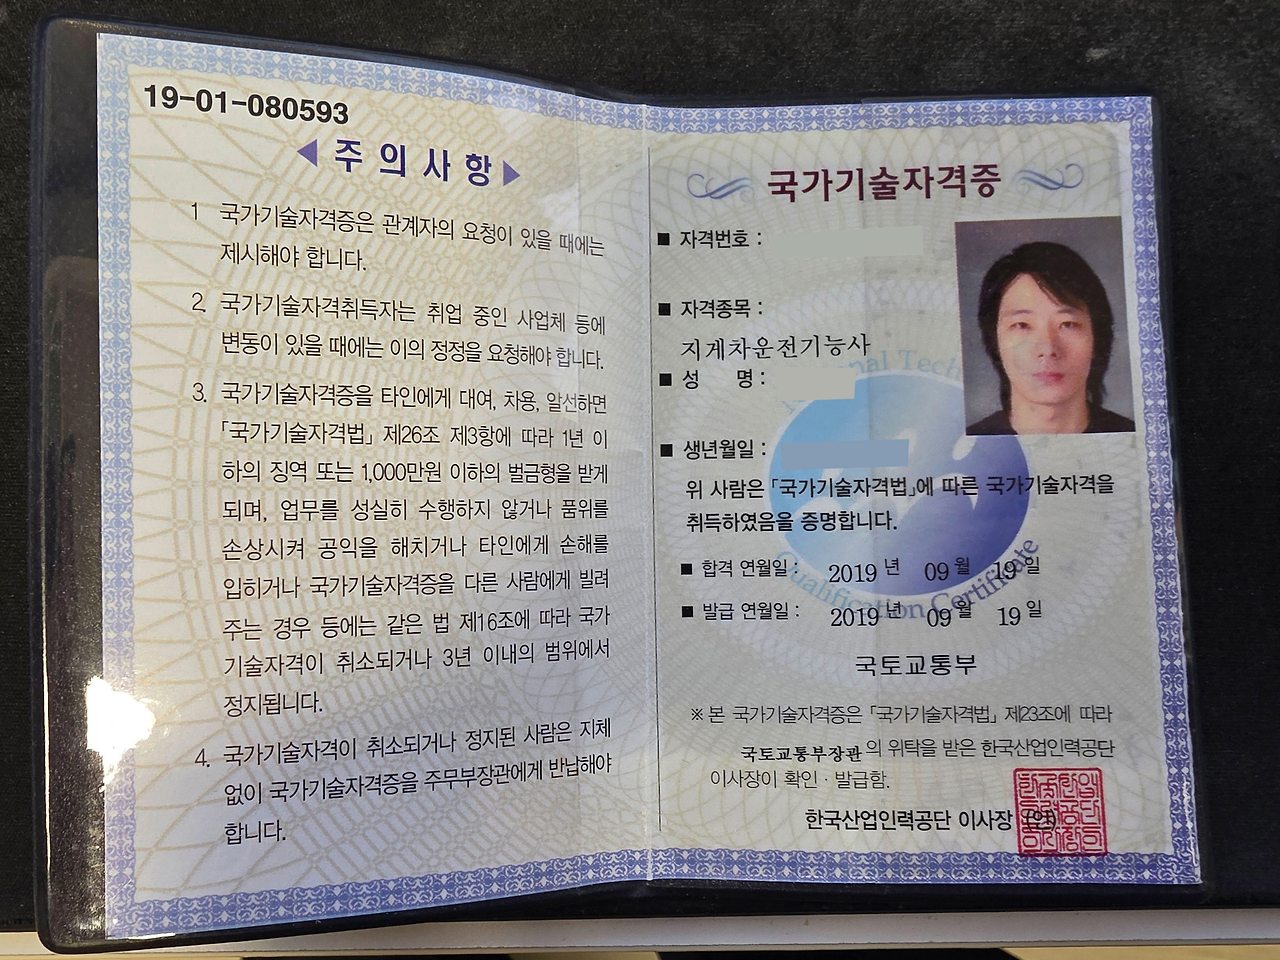 19-01-080593
◀주의사항▶
1 국가기술자격증은 관계자의 요청이 있을 때에는
제시해야 합니다.
2. 국가기술자격취득자는 취업 중인 사업체 등에
변동이 있을 때에는 이의 정정을 요청해야 합니다.
3. 국가기술자격증을 타인에게 대여, 차용, 알선하면
「국가기술자격법」 제26조 제3항에 따라 1년 이
하의 징역 또는 1,000만원 이하의 벌금형을 받게
되며, 업무를 성실히 수행하지 않거나 품위를
손상시켜 공익을 해치거나 타인에게 손해를
입히거나 국가기술자격증을 다른 사람에게 빌려
주는 경우 등에는 같은 법 제16조에 따라 국가
기술자격이 취소되거나 3년 이내의 범위에서
정지됩니다.
4. 국가기술자격이 취소되거나 정지된 사람은 지체
없이 국가기술자격증을 주무부장관에게 반납해야
합니다.
국가기술자격증
■ 자격번호 :
■ 자격종목 :
지게차운전기능사
■ 성 명 :
■ 생년월일 :
위 사람은 「국가기술자격법」에 따른 국가기술자격을
취득하였음을 증명합니다.
■ 합격 연월일 : 2019 년 09 월 19 일
■ 발급 연월일 : 2019 년 09 월 19 일
국토교통부
※ 본 국가기술자격증은 「국가기술자격법」 제23조에 따라
국토교통부장관의 위탁을 받은 한국산업인력공단
이사장이 확인 · 발급함.
한국산업인력공단 이사장 (인)
Qualification Certificate